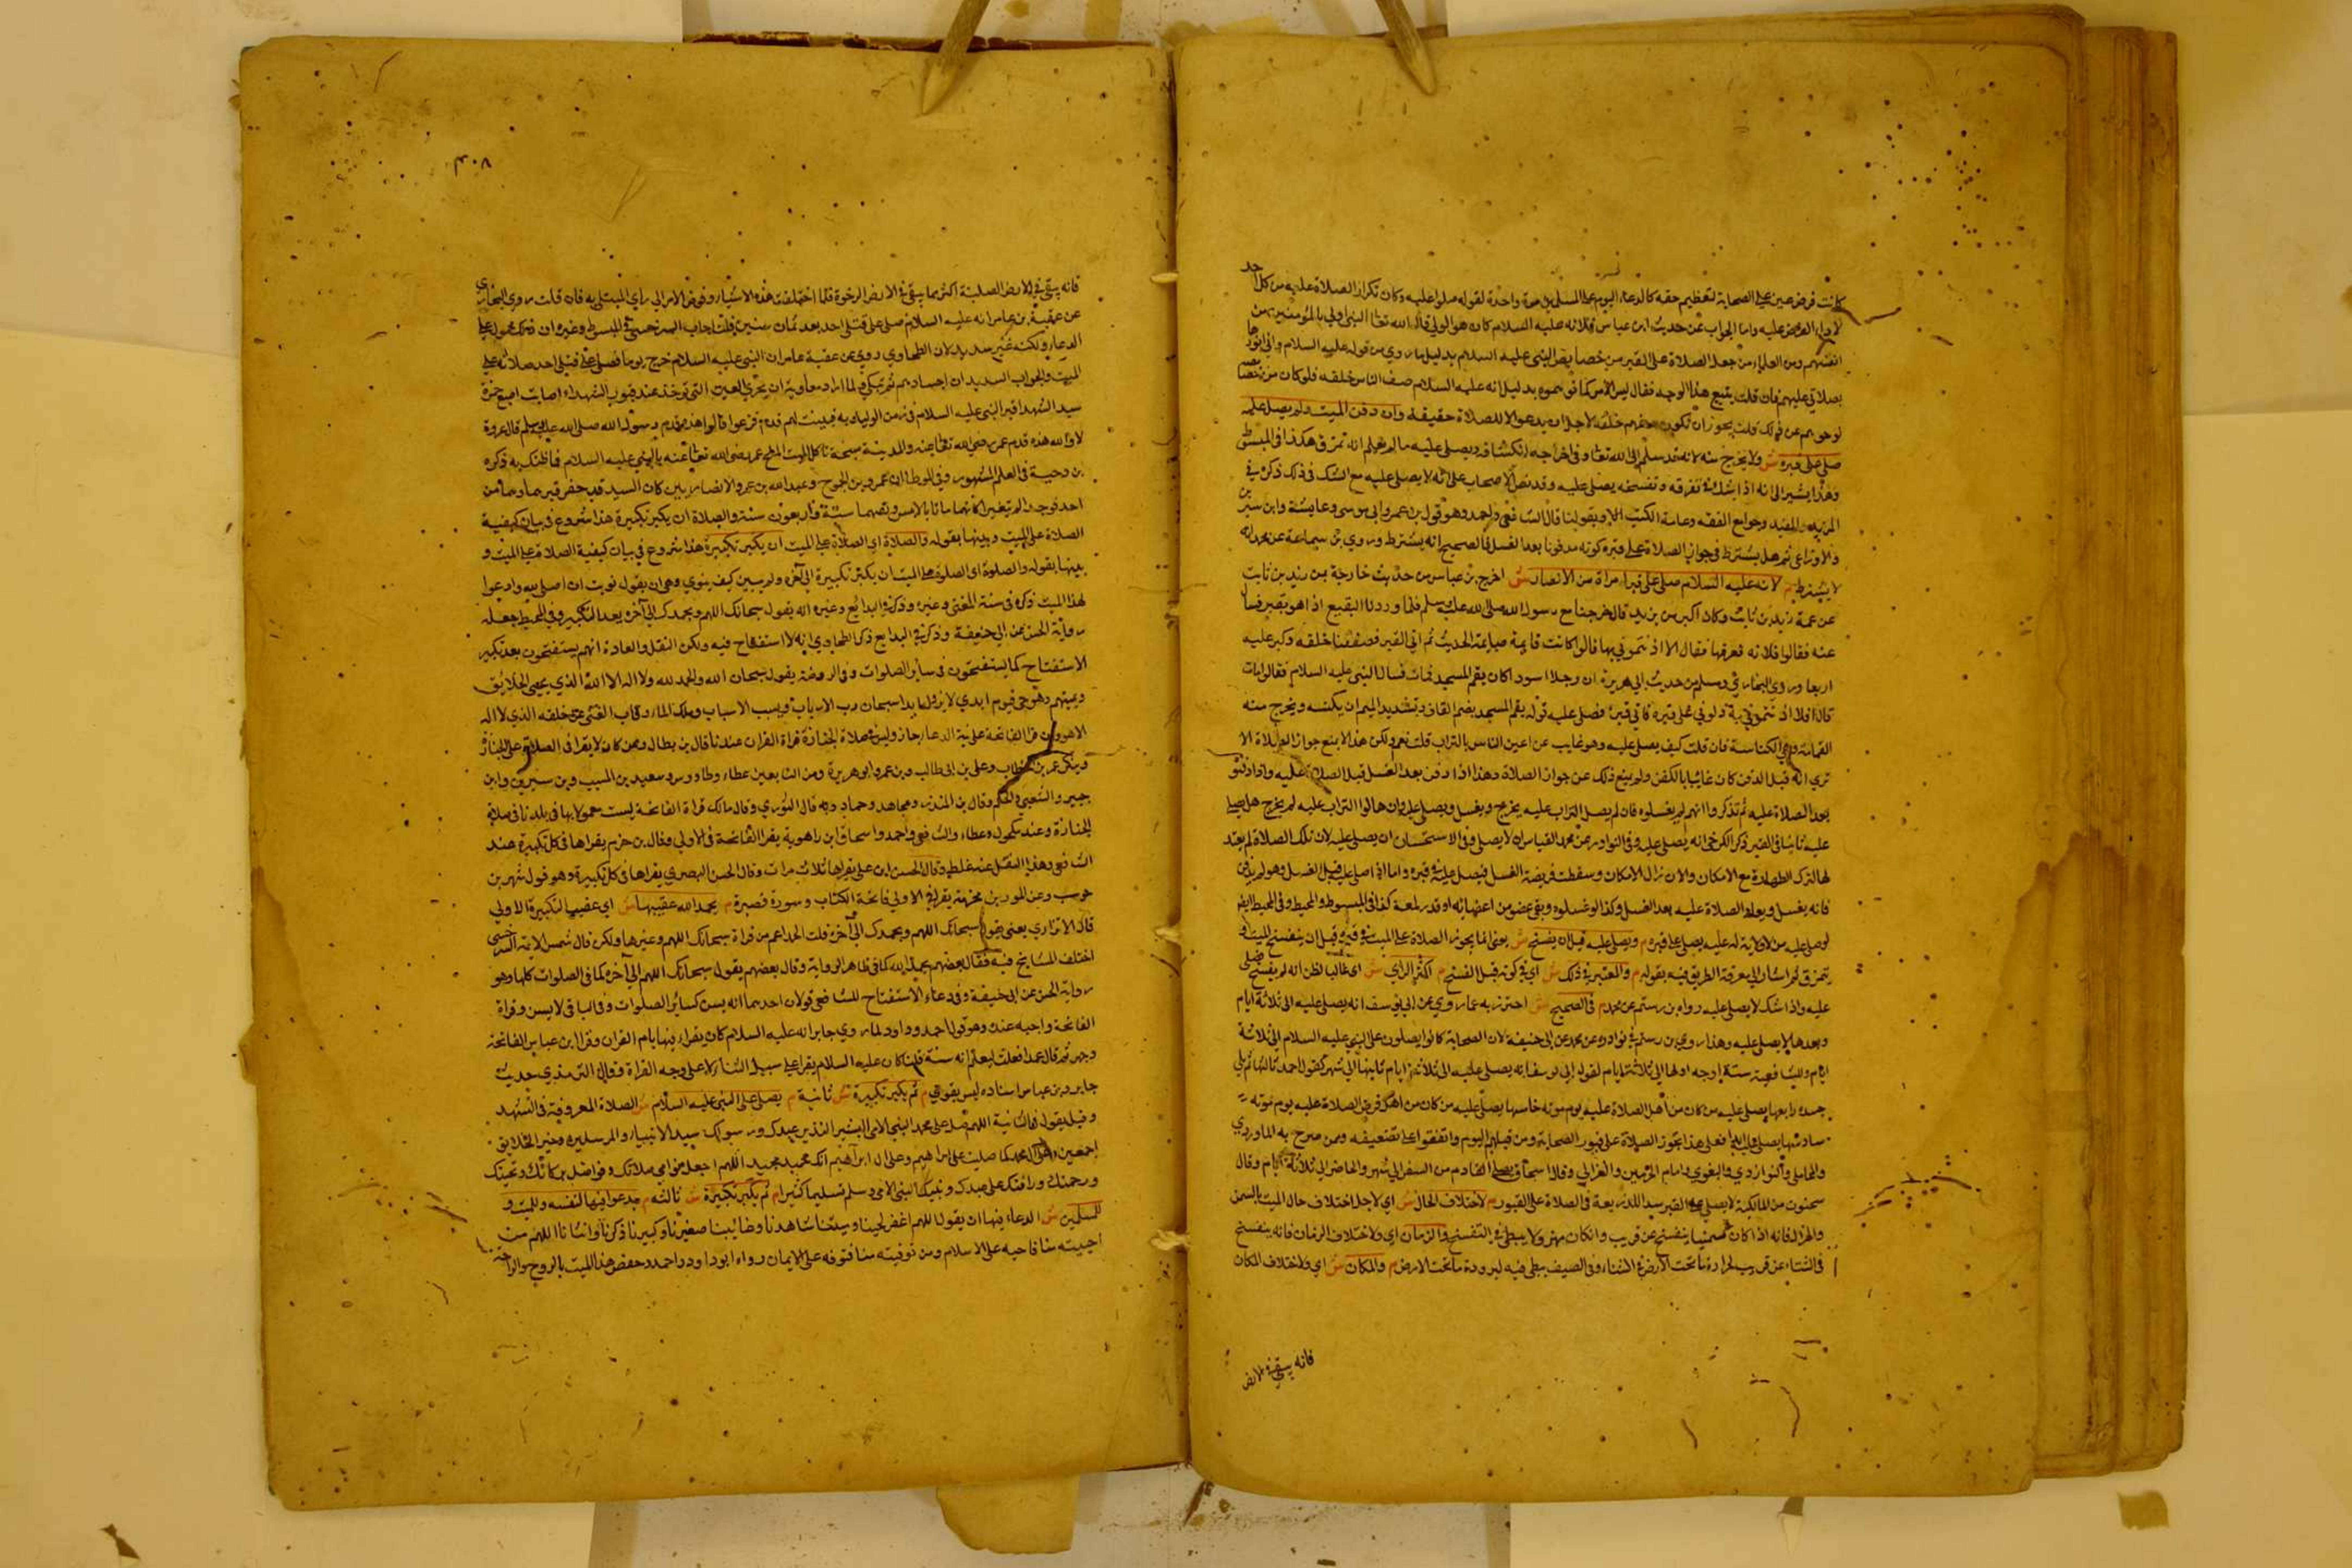 كانت فرض عين على الصحابة لتعظيم حقه كالدعاء اليوم على المسلمين مرة واحدة لقوله صلوا عليه وكان تكرار الصلاة عليه من كل احد
لاداء الفرض عليه واما الجواب عن حديث ابن عباس فلانه عليه السلام كان هو الولي قال الله تعالى النبي اولى بالمؤمنين من
انفسهم ومن العلماء من جعل الصلاة على القبر من خصايص النبي عليه السلام بدليل ما روي من قوله عليه السلام واني انورها
بصلاتي عليهم فان قلت يتبع هذا الوجه فقال ليس الامر كما توهموه بدليل انه عليه السلام صف الناس خلفه فلو كان من خصايصه
لزجرهم عن ذلك قلت يجوز ان تكون صفهم خلفه لاجل ان يدعوا لا للصلاة حقيقة وان دفن الميت ولم يصل عليه
صلى على قبره ش ولا يخرج منه لانه قد سلم الى الله تعالى وفي اخراجه انكشافه ويصلى عليه ما لم يعلم انه تمزق هكذا في المبسوط
وهذا يشير الى انه اذا شك في تفرقه وتفسخه يصلى عليه وقد نص الاصحاب على انه لا يصلى عليه مع الشك في ذلك ذكره في
المزيد والمفيد وجوامع الفقه وعامة الكتب وبقولنا قال الشافعي واحمد وهو قول ابن عمر وابي موسى وعايشة وابن سيرين
والاوزاعي ثم هل يشترط في جواز الصلاة على قبره كونه مدفونا بعد الغسل فالصحيح انه يشترط وروى بن سماعة عن محمد انه
لا يشترط م لانه عليه السلام صلى على قبر امراة من الانصار ش اخرج بن عباس من حديث خارجة بن زيد بن ثابت
عن عمه زيد بن ثابت وكان اكبر من زيد قال خرجنا مع رسول الله صلى الله عليه وسلم فلما وردنا البقيع اذا هو بقبر فسأل
عنه فقالوا فلانه فعرفها فقال الا اذنتموني بها قالوا كانت قايمة صايمة الحديث ثم اتى القبر فصففنا خلفه وكبر عليه
اربعا وروى البخاري ومسلم من حديث ابي هريرة ان رجلا اسود كان يقم المسجد فمات فسال النبي عليه السلام فقالوا مات
قال افلا اذنتموني به دلوني على قبره فاتى قبره فصلى عليه قوله يقم المسجد بضم القاف وتشديد الميم ان يكنسه ويخرج منه
القمامة وهي الكناسة فان قلت كيف يصلى عليه وهو غايب عن اعين الناس بالتراب قلت نعم ولكن هذا لا يمنع جواز الصلاة الا
ترى انه قبل الدفن كان غائبا بالكفن ولم يمنع ذلك عن جواز الصلاة وهذا اذا دفن بعد الغسل قبل الصلاة عليه واذا دفنوه
بعد الصلاة عليه ثم تذكروا انهم لم يغسلوه فان لم يهل التراب عليه يخرج ويغسل ويصلى عليه وان هالوا التراب عليه لم يخرج هل يصلى
عليه ثانيا في القبر ذكر الكرخي انه يصلى عليه وفي النوادر عن محمد القياس ان لا يصلى وفي الاستحسان ان يصلى عليه لان تلك الصلاة لم يعتد
لها لترك الطهارة مع الامكان والان زال الامكان وسقطت فريضة الغسل فيصلى عليه في قبره واما اذا صلي عليه قبل الغسل وهو لم يدفن
فانه يغسل ويعاد الصلاة عليه بعد الغسل وكذا لو غسلوه وبقي عضو من اعضائه او قدر لمعة كذا في المبسوط والمحيط وفي المحيط ايضا
لو صلى عليه من لا ولاية له عليه يصلى على قبره م ويصلى عليه قبل ان يفسخ ش يعني انما يجوز الصلاة على الميت في قبره قبل ان يتفسخ الميت او
يتمزق ثم اشار الى معرفة الطريق فيه بقوله م والمعتبر في ذلك ش اي في كونه قبل التفسخ م اكثر الراي ش اي غالب الظن انه لم يفسخ فيصلى
عليه واذا شك لا يصلى عليه رواه بن رستم عن محمد م في الصحيح ش احترز به عما روي عن ابي يوسف انه يصلى عليه الى ثلاثة ايام
وبعدها لا يصلى عليه وهذا روى بن رستم في نوادره عن محمد عن ابي حنيفة لان الصحابة كانوا يصلون على النبي عليه السلام الى ثلاثة
ايام وللشافعية ستة اوجه اولها الى ثلاثة ايام لقول ابي يوسف انه يصلى عليه الى ثلاثة ايام ثانيها الى شهر كقول احمد ثالثها لم يبل
جسده رابعها يصلى عليه من كان من اهل الصلاة عليه يوم موته خامسها يصلى عليه من كان من اهل فرض الصلاة عليه يوم موته
سادسها يصلى عليه ابدا فعلى هذا يجوز الصلاة على قبور الصحابة ومن قبلهم اليوم واتفقوا على تضعيفه وممن صرح به الماوردي
والمحاملي والبغوي وامام الحرمين والغزالي وقال اسحاق يصلي القادم من السفر الى شهر والحاضر الى ثلاثة ايام وقال
سحنون من المالكية لا يصلى على القبر سدا للذريعة في الصلاة على القبور م لاختلاف الحال ش اي لاجل اختلاف حال الميت بالسمن
والهزال فانه اذا كان سمينا يتفسخ عن قريب وان كان مهزولا يبطئ في التفسخ والزمان اي ولاختلاف الزمان فانه يتفسخ
في الشتاء عن قريب لحرارة ما تحت الارض في الشتاء وفي الصيف يبطي فيه لبرودة ما تحت الارض م والمكان ش اي ولاختلاف المكان
فانه يبقى في الارض
٣٠٨
فانه يبقى في الارض الصلبة اكثر مما يبقى في الارض الرخوة فلما اختلفت هذه الاشياء فوض الامر الى راي المبتلى به فان قلت روى البخاري
عن عقبة بن عامر انه عليه السلام صلى على قتلى احد بعد ثمان سنين قلت اجاب السرخسي في المبسوط وغيره ان ذلك محمول على
الدعاء ولكنه غير سديد لان الطحاوي روى عن عقبة عامر ان النبي عليه السلام خرج يوما فصلى على قتلى احد صلاته على
الميت والجواب السديد ان اجسادهم لم تبلى لما اراد معاوية ان يجري العين التي توخذ عند قبور الشهداء اصابت اصبع حمزة
سيد الشهدا قبر النبي عليه السلام في زمن الوليد به فبدت لهم قدم فزعوا قالوا هذه قدم رسول الله صلى الله عليه وسلم قال عروة
لا والله هذه قدم عمر رضي الله تعالى عنه والمدينة سبخة تاكل الميت الملح عمر رضي الله تعالى عنه بالنبي عليه السلام فما ظنك به ذكره
بن دحية في العلم المشهور وفي الموطا ان عمرو بن الجموح وعبد الله بن عمرو الانصاريين كان السيد قد حفر قبرهما وهما من
احد فوجدا لم يتغيرا كانهما ماتا بالامس وبينهما ستة واربعون سنة والصلاة ان يكبر تكبيرة هذا شروع في بيان كيفية
الصلاة على الميت وبينها بقوله والصلاة اي الصلاة على الميت ان يكبر تكبيرة هذا شروع في بيان كيفية الصلاة على الميت و
بينها بقوله والصلوة اى الصلوة على الميت ان يكبر تكبيرة الى آخره ولم يبين كيف ينوي وهي ان يقول نويت ان اصلي لله وادعوا
لهذا الميت ذكره في منية المفتي وغيره وذكر في البدائع وغيره انه يقول سبحانك اللهم وبحمدك الى آخره بعد التكبير وفي المحيط جعله
رواية الحسن عن ابي حنيفة وذكر في البدايع ذكر الطحاوي انه لا استفتاح فيه ولكن النقل والعادة انهم يستفتحون بعد تكبير
الاستفتاح كما يستفتحون في ساير الصلوات وفي الروضة يقول سبحان الله والحمد لله ولا اله الا الله الذي يحيي الخلايق
ويميتهم وهو حي قيوم ابدي لا يزول ابدا سبحان رب الارباب ومسبب الاسباب ومالك الغني عن خلقه الذي لا اله
الا هو ولو قرا الفاتحة على نية الدعاء جاز وليس في صلاة الجنازة قراة القران عندنا قال بن بطال وممن كان لا يقرا في الصلاة على الجنازة
وينكر عمر بن الخطاب وعلي بن ابي طالب وبن عمر وابو هريرة ومن التابعين عطاء وطاووس وسعيد بن المسيب وبن سيرين وابن
جبير والشعبي والحكم وقال بن المنذر ومجاهد وحماد وبه قال الثوري وقال مالك قراة الفاتحة ليست معمولا بها في بلدنا في صلاة
الجنازة وعند مكحول وعطاء والشافعي واحمد واسحاق ابن راهوية يقرا الفاتحة في الاولى وقال بن حزم يقراها في كل تكبيرة عند
الشافعي وهذا النقل عنه غلط وقال الحسن ابن علي يقراها ثلاث مرات وقال الحسن البصري يقراها في كل تكبيرة وهو قول شهر بن
حوشب وعن المسور بن مخرمة يقرا في الاولى فاتحة الكتاب وسورة قصيرة م يحمد الله عقيبها ش اي عقيب التكبيرة الاولى
قال الاترازي يعني يقول سبحانك اللهم وبحمدك الى آخره قلت الحمد اعم من قراة سبحانك اللهم وغيرها ولكن قال شمس الايمة السرخسي
اختلف المشايخ فيه فقال بعضهم يحمد الله كما في ظاهر الرواية وقال بعضهم يقول سبحانك اللهم الى آخره كما في الصلوات كلها وهو
رواية الحسن عن ابي حنيفة وفي دعاء الاستفتاح للشافعي قولان احدهما انه يسن كسائر الصلوات وفي الباقي لا يسن وقراة
الفاتحة واجبه عنده وهو قول احمد وداود لما روى جابر انه عليه السلام كان يقراء فيها بام القران وقرا ابن عباس الفاتحة
وجهر ثم قال عمدا فعلت ليعلم انه سنة قلت كان عليه السلام يقرا على سبيل الثناء لا على وجه القراة وقال الترمذي حديث
جابر وبن عباس اسناده ليس بقوي م ثم يكبر تكبيرة ش ثانية م يصلى على النبي عليه السلام ش الصلاة المعروفة في التشهد
وقيل يقول في الثانية اللهم صل على محمد النبي الامي البشير النذير عبدك ورسولك سيد الانبياء والمرسلين وخير الخلايق
اجمعين وعلى آل محمد كما صليت على ابراهيم وعلى ال ابراهيم انك حميد مجيد اللهم اجعل نوامي صلاتك وفواضل بركاتك وتحيتك
ورحمتك ورافتك على عبدك ونبيك النبي الامي وسلم تسليما كثيرا م ثم يكبر تكبيرة ش ثالثه م يدعو فيها لنفسه وللميت و
للمسلمين ش الدعاء فيها ان يقول اللهم اغفر لحينا وميتنا شاهدنا وغائبنا صغيرنا وكبيرنا ذكرنا وانثانا اللهم من
احييته منا فاحيه على الاسلام ومن توفيته منا فتوفه على الايمان رواه ابو داود واحمد وخص هذا الميت بالروح والراحة